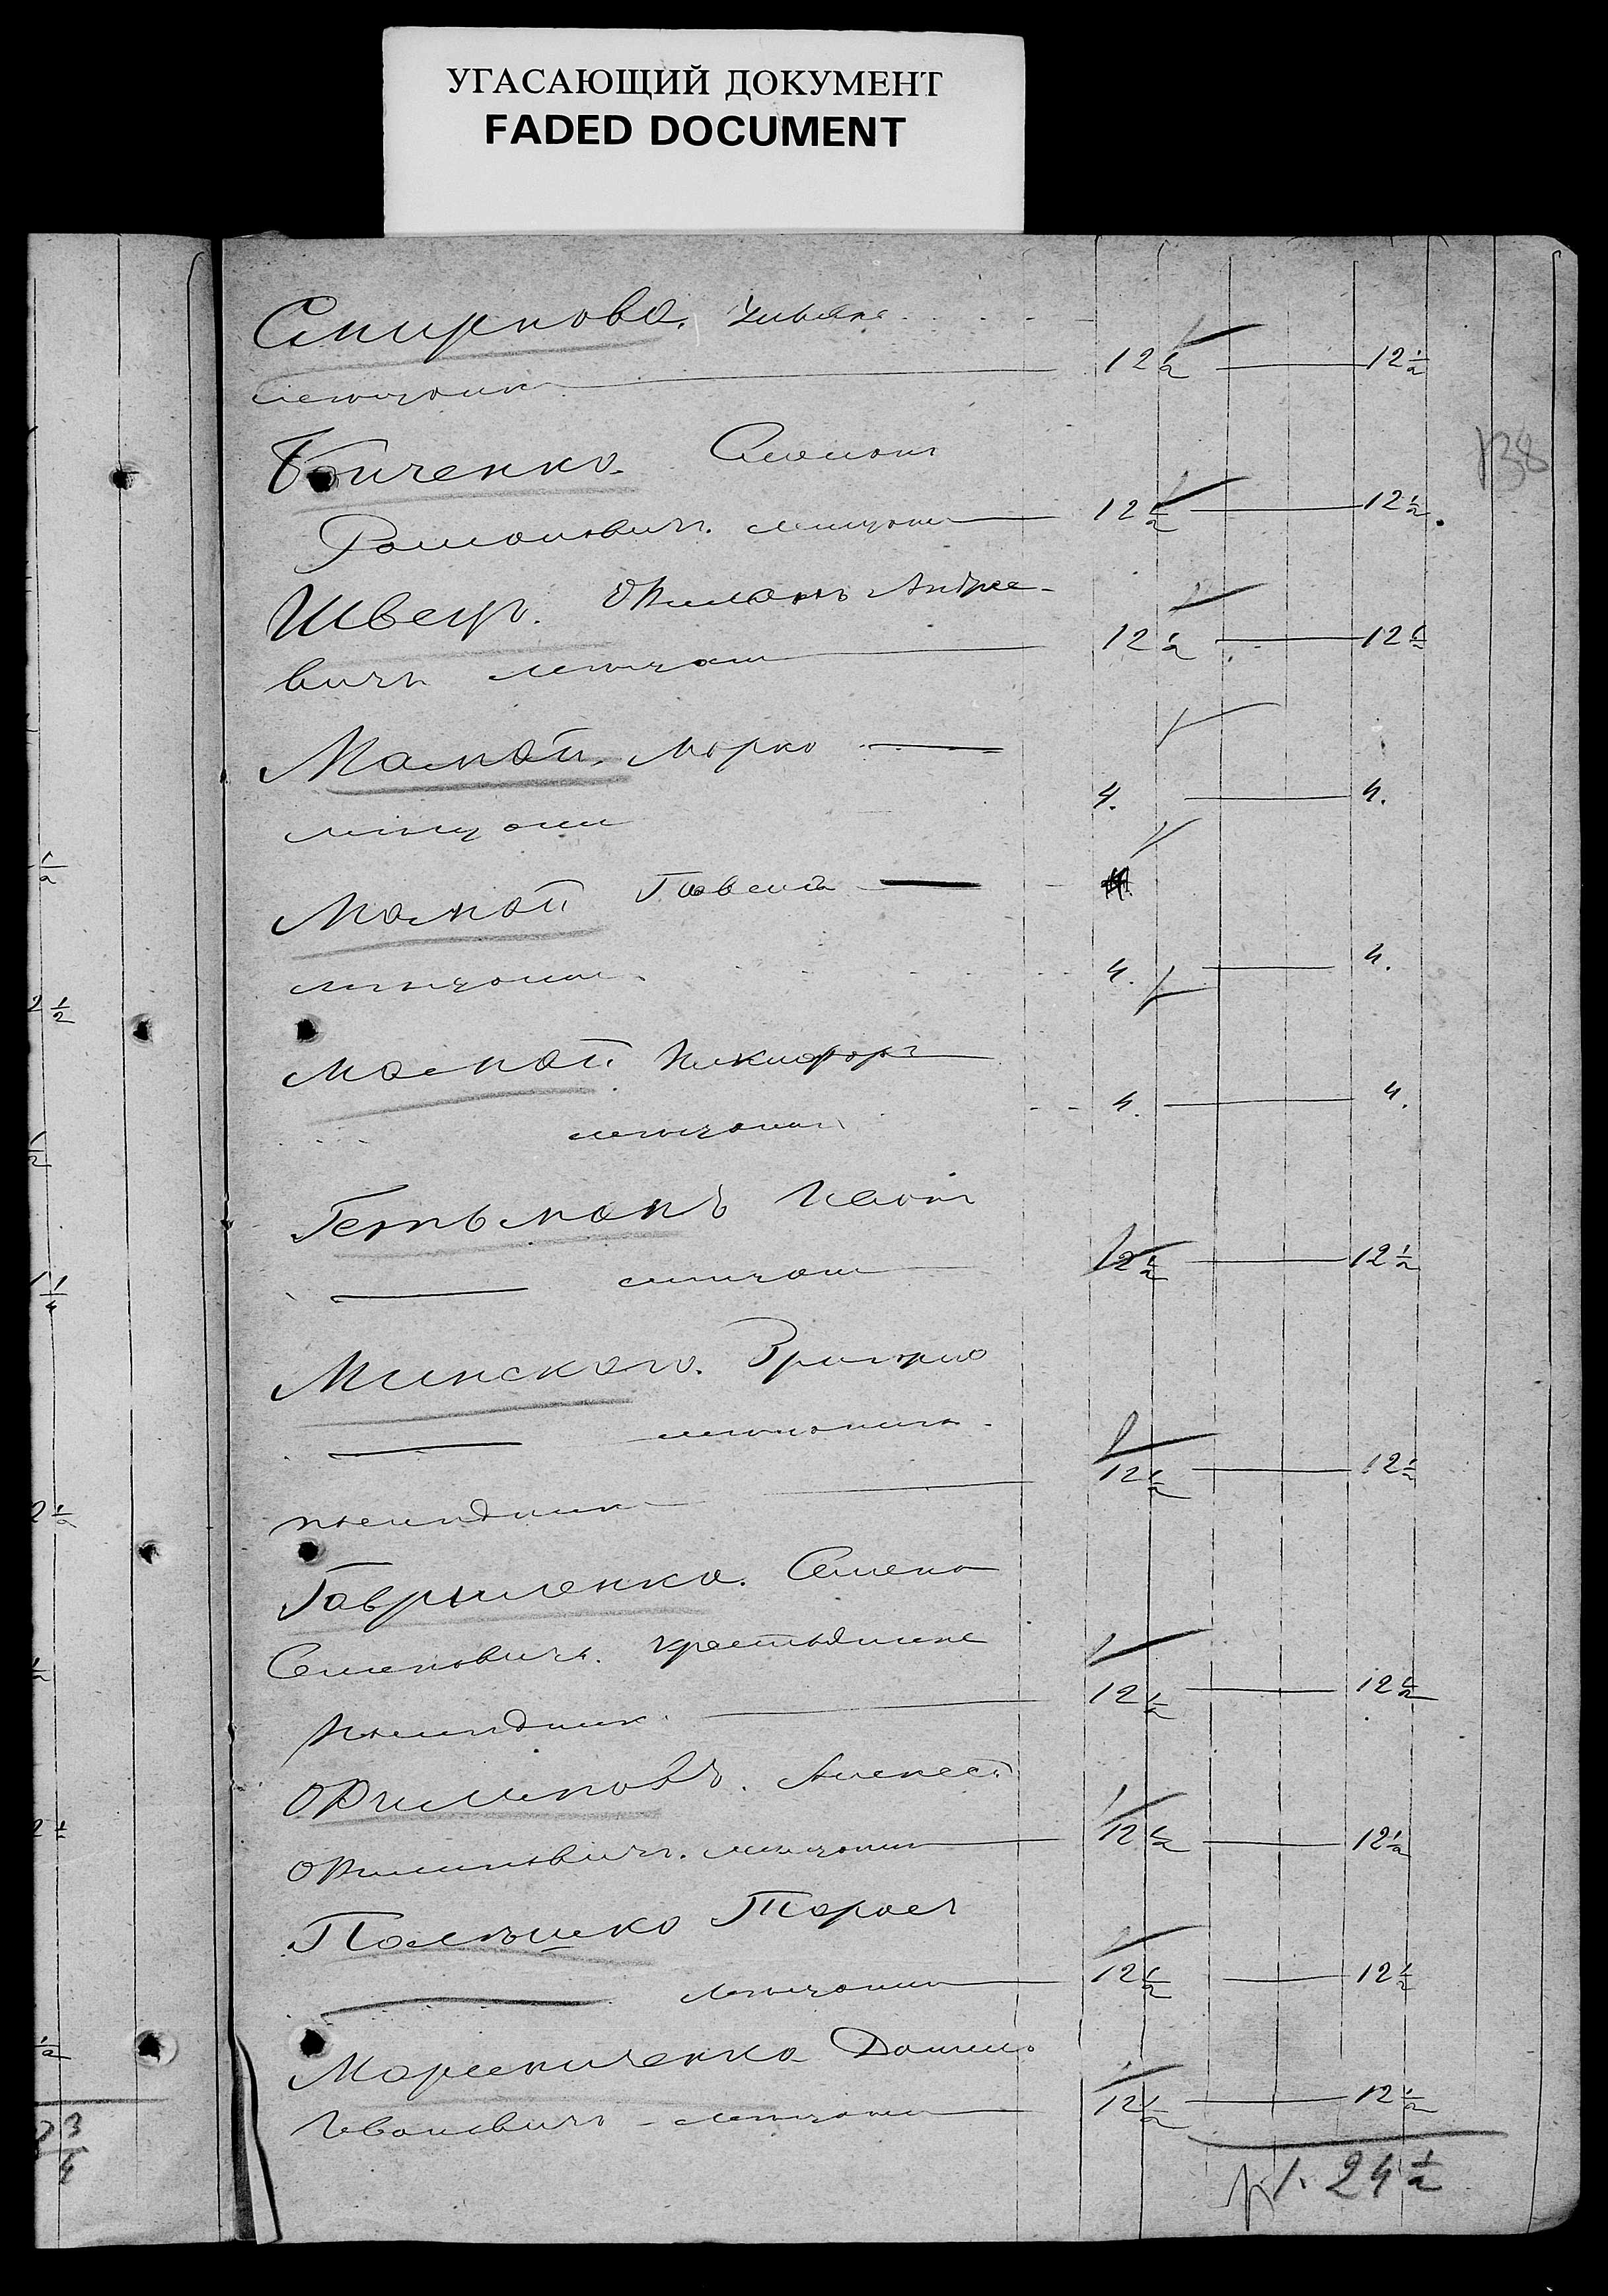 УГАСАЮЩИЙ ДОКУМЕНТ
FADED DOCUMENT
Смирнова.
12 1/2 — 12 1/2
138
Бойченко.
Романовичъ. мещанин
12 1/2 — 12 1/2.
Швецъ. Филиппъ Андрее-
вичъ мещанин
12 1/2 — 12 1/2
Мамай, Марко —
мещанин
4. — 4.
Мамай Павелъ —
мещанин.
4. — 4.
Мамай Никифоръ
мещанин
4. — 4.
Гетьманъ Иванъ
— мещанин
12 1/2 — 12 1/2
Минского. Григорiя
— мещанина.
12 1/2 — 12 1/2
Гаврыленко. Семенъ
Семеновичъ. крестьянинъ
12 1/2 — 12 1/2
Филиповъ. Алексей
Филиповичъ. мещанин
12 1/2 — 12 1/2
Тарасъ
— мещанин
12 1/2 — 12 1/2
Данило
Ивановичъ – мещанин
12 1/2 — 12 1/2
р 1. 24 1/2